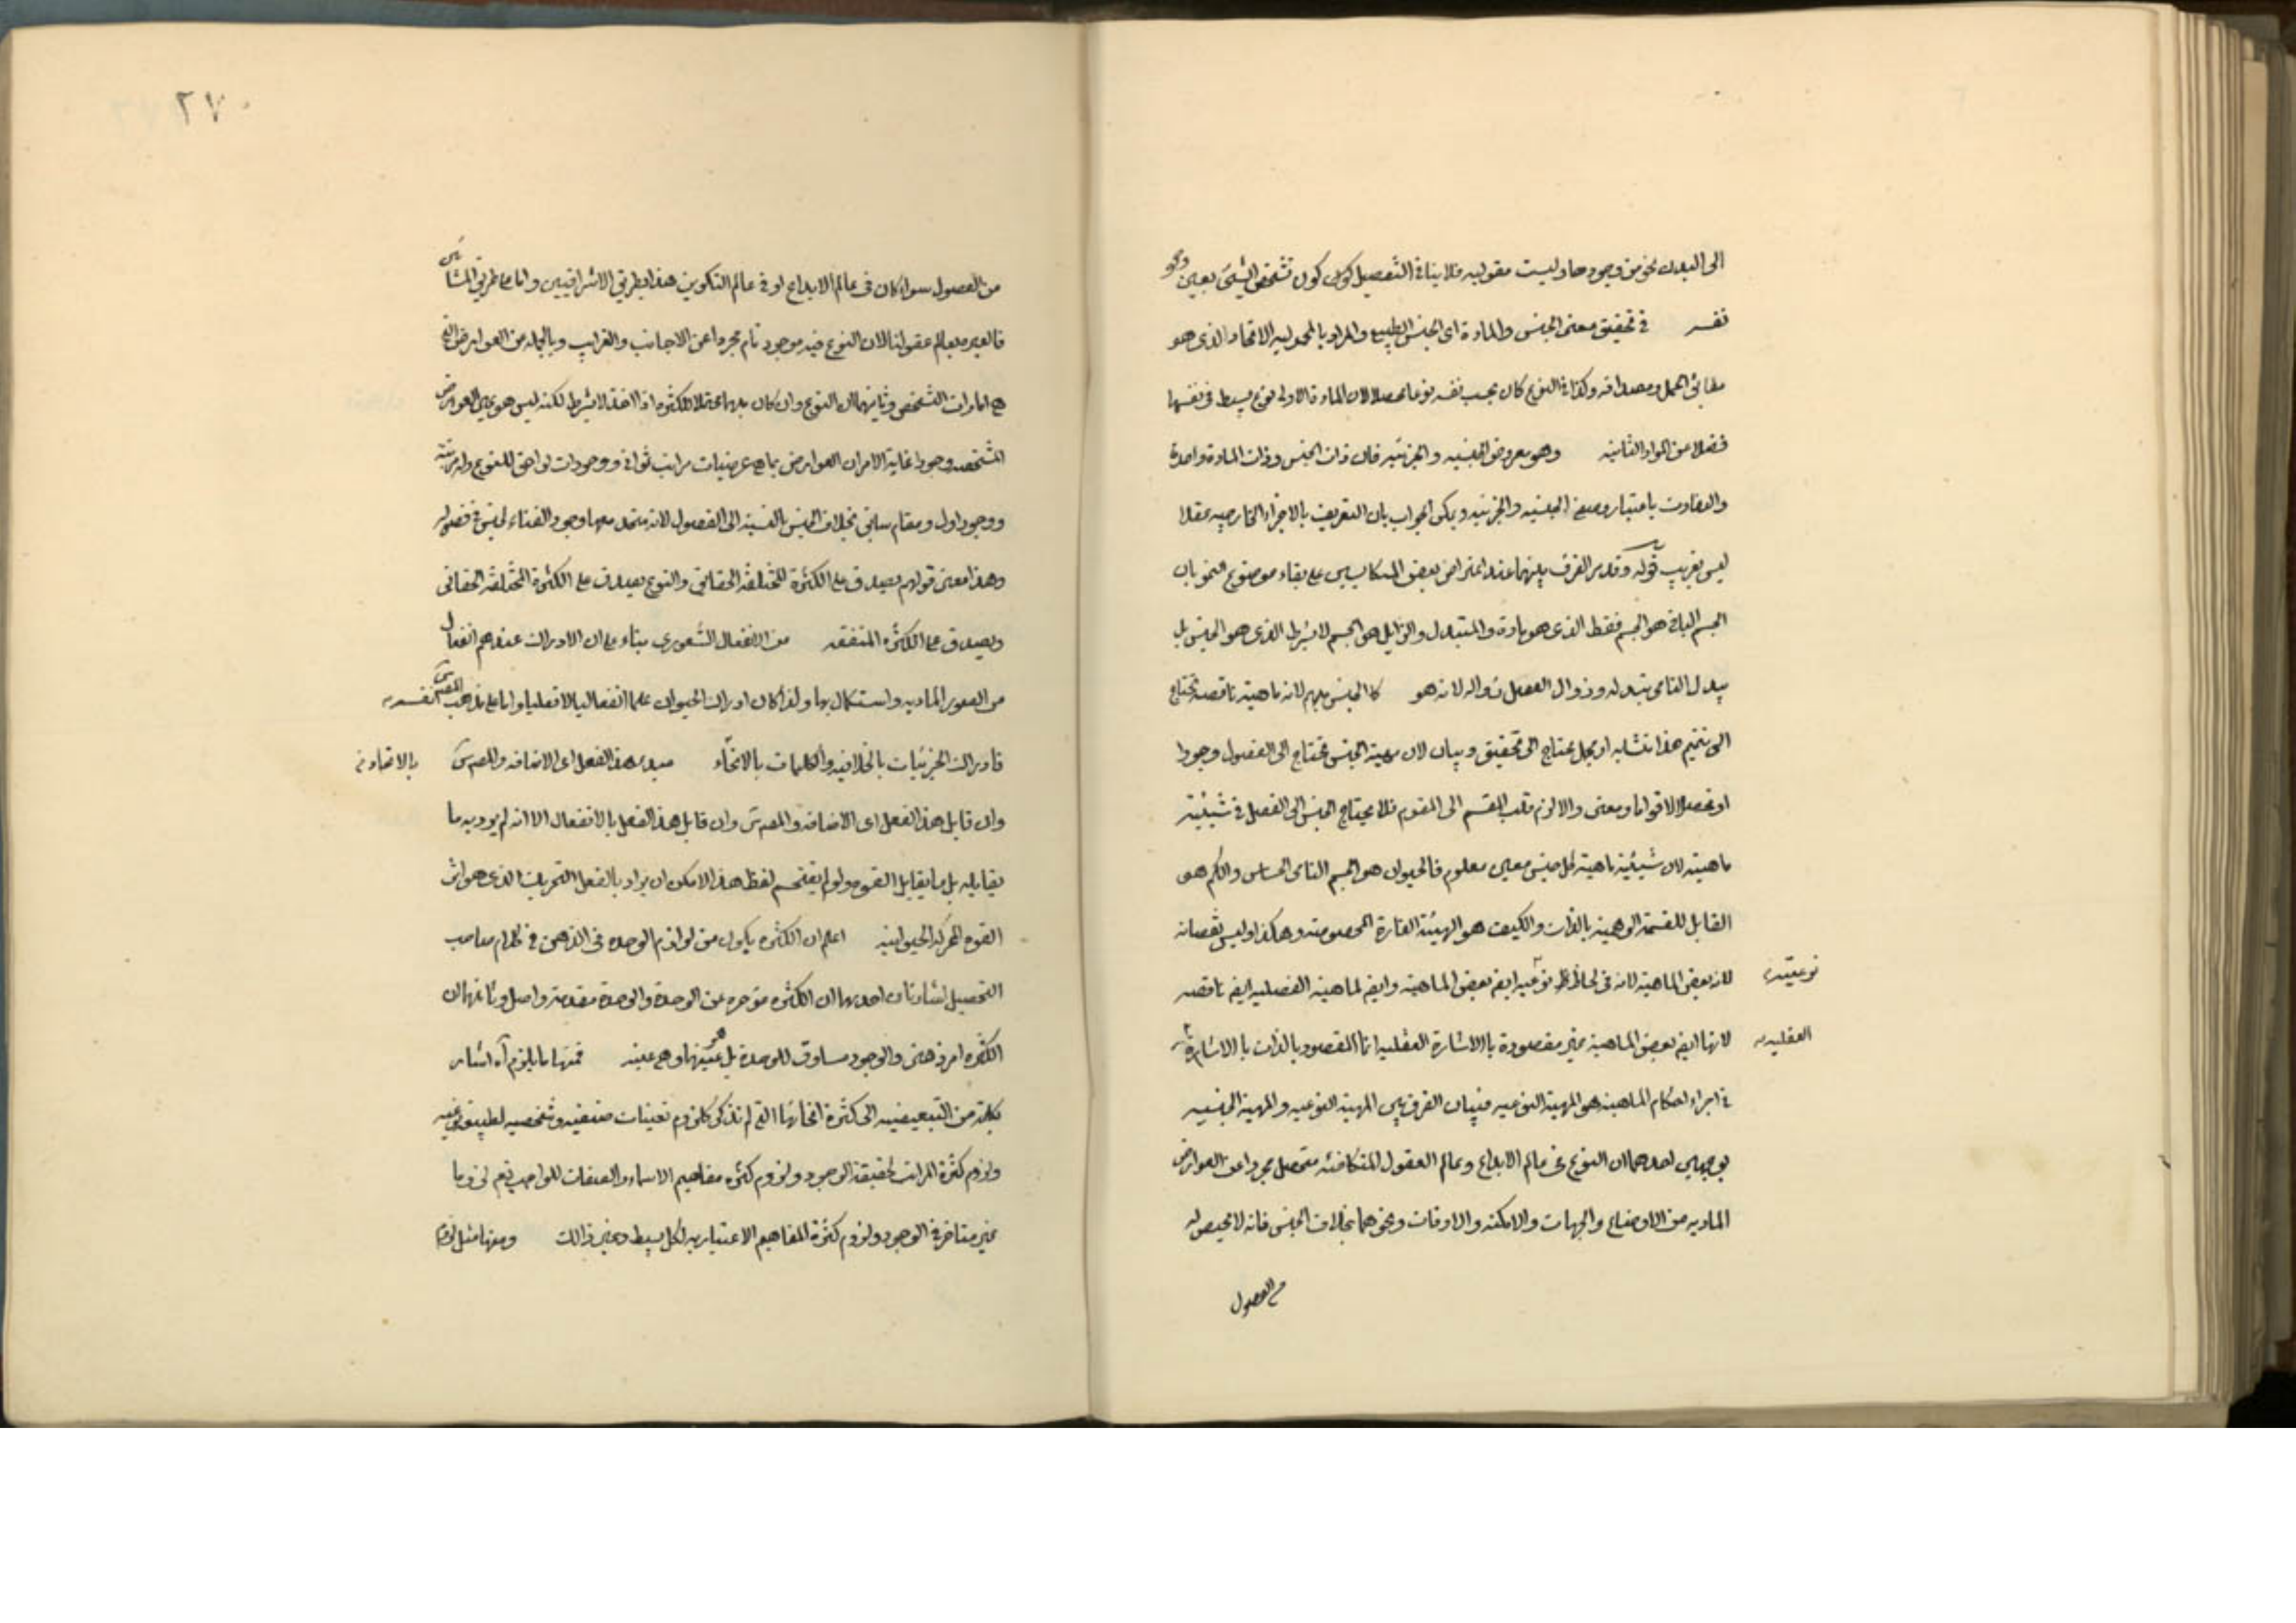 الى البدن نحو من وجودها وليست مقوليه فلا ينافى التفصيل كون تشخص الشئ بعين
ونحو
نفسه في تحقيق معنى الجنس والمادة اى الجنس الطبيعى والمراد بالمحموليه الاتحاد الذى هو
مطابق الحمل ومصداقه وكذا فى النوع كان بحسب نفسه نوعا محصلا لان المادة الاولى نوع بسيط فى نفسها
فضلا عن المواد الثانيه وهو معروض الجنسيه والجزئيه فان ذات الجنس وذات المادة واحدة
والتفاوت باعتبار وصفى الجنسيه والجزئيه ويمكن الجواب بان التعريف بالاجزاء الخارجيه عقلا
ليس بغريب قوله وقد مر الفرق بينهما عند اعتراض بعض على بقاء موضوع النمو بان
الجسم الباقى هو الجسم فقط الذى هو مادة والمتبدل والزايل هو الجسم لا بشرط الذى هو الجنس بل
يبدل النامى بتبدله وزوال الفصل زواله لانه هو كالجنس مبهم لانه ماهيته ناقصه تحتاج
الى تتميم هذا متشابه او مجمل يحتاج الى تحقيق وبيان لان مهية الجنس محتاج الى الفصول وجودا
او تحصلا لا قواما ومعنى والا لزم قلب المقسم الى المقوم فلا يحتاج الجنس الى الفصل فى شيئية
ماهيته لان شيئية ماهية كل جنس معين معلوم فالحيوان هو الجسم النامى الحساس والكم هو
القابل للقسمة الوهمية بالذات والكيف هو الهيئة القارة المخصوصه وهكذا وليس نقصانه
لانه بعض الماهية لانه فى لحاظ نوعيه ايضا بعض الماهية وايضا الماهية الفصليه ايضا ناقصه
نوعيته
لانها ايضا بعض الماهية غير مقصودة بالاشارة العقليه انما المقصود بالذات بالاشارة
العقليه
فى اجراء احكام الماهية هو المهية النوعيه فبيان الفرق بين المهية النوعيه والمهية الجنسيه
بوجهين احدهما ان النوع فى عالم الابداع وعالم العقول المتكافئه متحصل مجردا عن العوارض
الماديه من الاوضاع والجهات والامكنه والاوقات ونحوهما بخلاف الجنس فانه لا محيص له
من الفصول
٢٧٠
من الفصول سواء كان فى عالم الابداع او فى عالم التكوين هذا بطريق الاشراقيين واما على طريق المشائين
فالعبرة بعالم عقولنا لان النوع فيه موجود تام مجردا عن الاجانب والغرايب وبالجمله من العوارض التى
هى امارات التشخص وثانيهما ان النوع وان كان مبهما محتملا للكثره اذا اخذ لا بشرط لكنه ليس هو عين العوارض
المشخصه وجودا غاية الامر ان العوارض بما هى عرضيات مراتب ثوانى ووجودات لواحق للنوع وله مرتبته
ووجود اول ومقام سابق بخلاف الجنس بالنسبة الى الفصول لانه متحد معها وجود الفناء الجنس فى فصله
وهذا معنى قولهم يصدق على الكثرة المختلفة الحقايق والنوع يصدق على الكثرة المختلفة الحقائق
ويصدق على الكثره المتفقه من الانفعال الشعورى بناء على ان الادراك عندهم انفعال
من الصور الماديه واستكمال بها ولذا كان ادراك الحيوان علما انفعاليا لا فعليا واما على مذهب المصنف نفسه
فادراك الجزئيات بالخلاقيه والكليات بالاتحاد مبدء هذا الفعل اى الاضافه والمصنف بالاتحاد
وان قابل هذا الفعل اى الاضافه والمصنف وان قابل هذا الفعل بالانفعال الا انه لم يرد به ما
يقابله بل ما يقابل القوه ولو لم يقتحم لفظ هذا لامكن ان يراد بالفعل التحريك الذى هو اثر
القوه المحركه الحيوانيه اعلم ان الكثره يكون من لوازم الوحده فى الذهن فى كلام صاحب
التحصيل اشارتان احديهما ان الكثره مؤخره عن الوحدة والوحدة مقدمة واصل وثانيهما ان
الكثره امر ذهنى والوجود مساوق للوحدة بل عينها وهى عينه فمنها ما يلزم آه اشار
بكلمة من التبعيضيه الى كثرة انحائها التى لم تذكر كلزوم تعينات صنفيه وشخصيه لطبيعه نوعيه
ولزوم كثرة المراتب لحقيقة الوجود ولزوم كثره مفاهيم الاسماء والصفات للواجب تعم لزوما
غير متاخر فى الوجود ولزوم كثرة المفاهيم الاعتباريه لكل بسيط وغير ذالك ومنها مثل لزوم